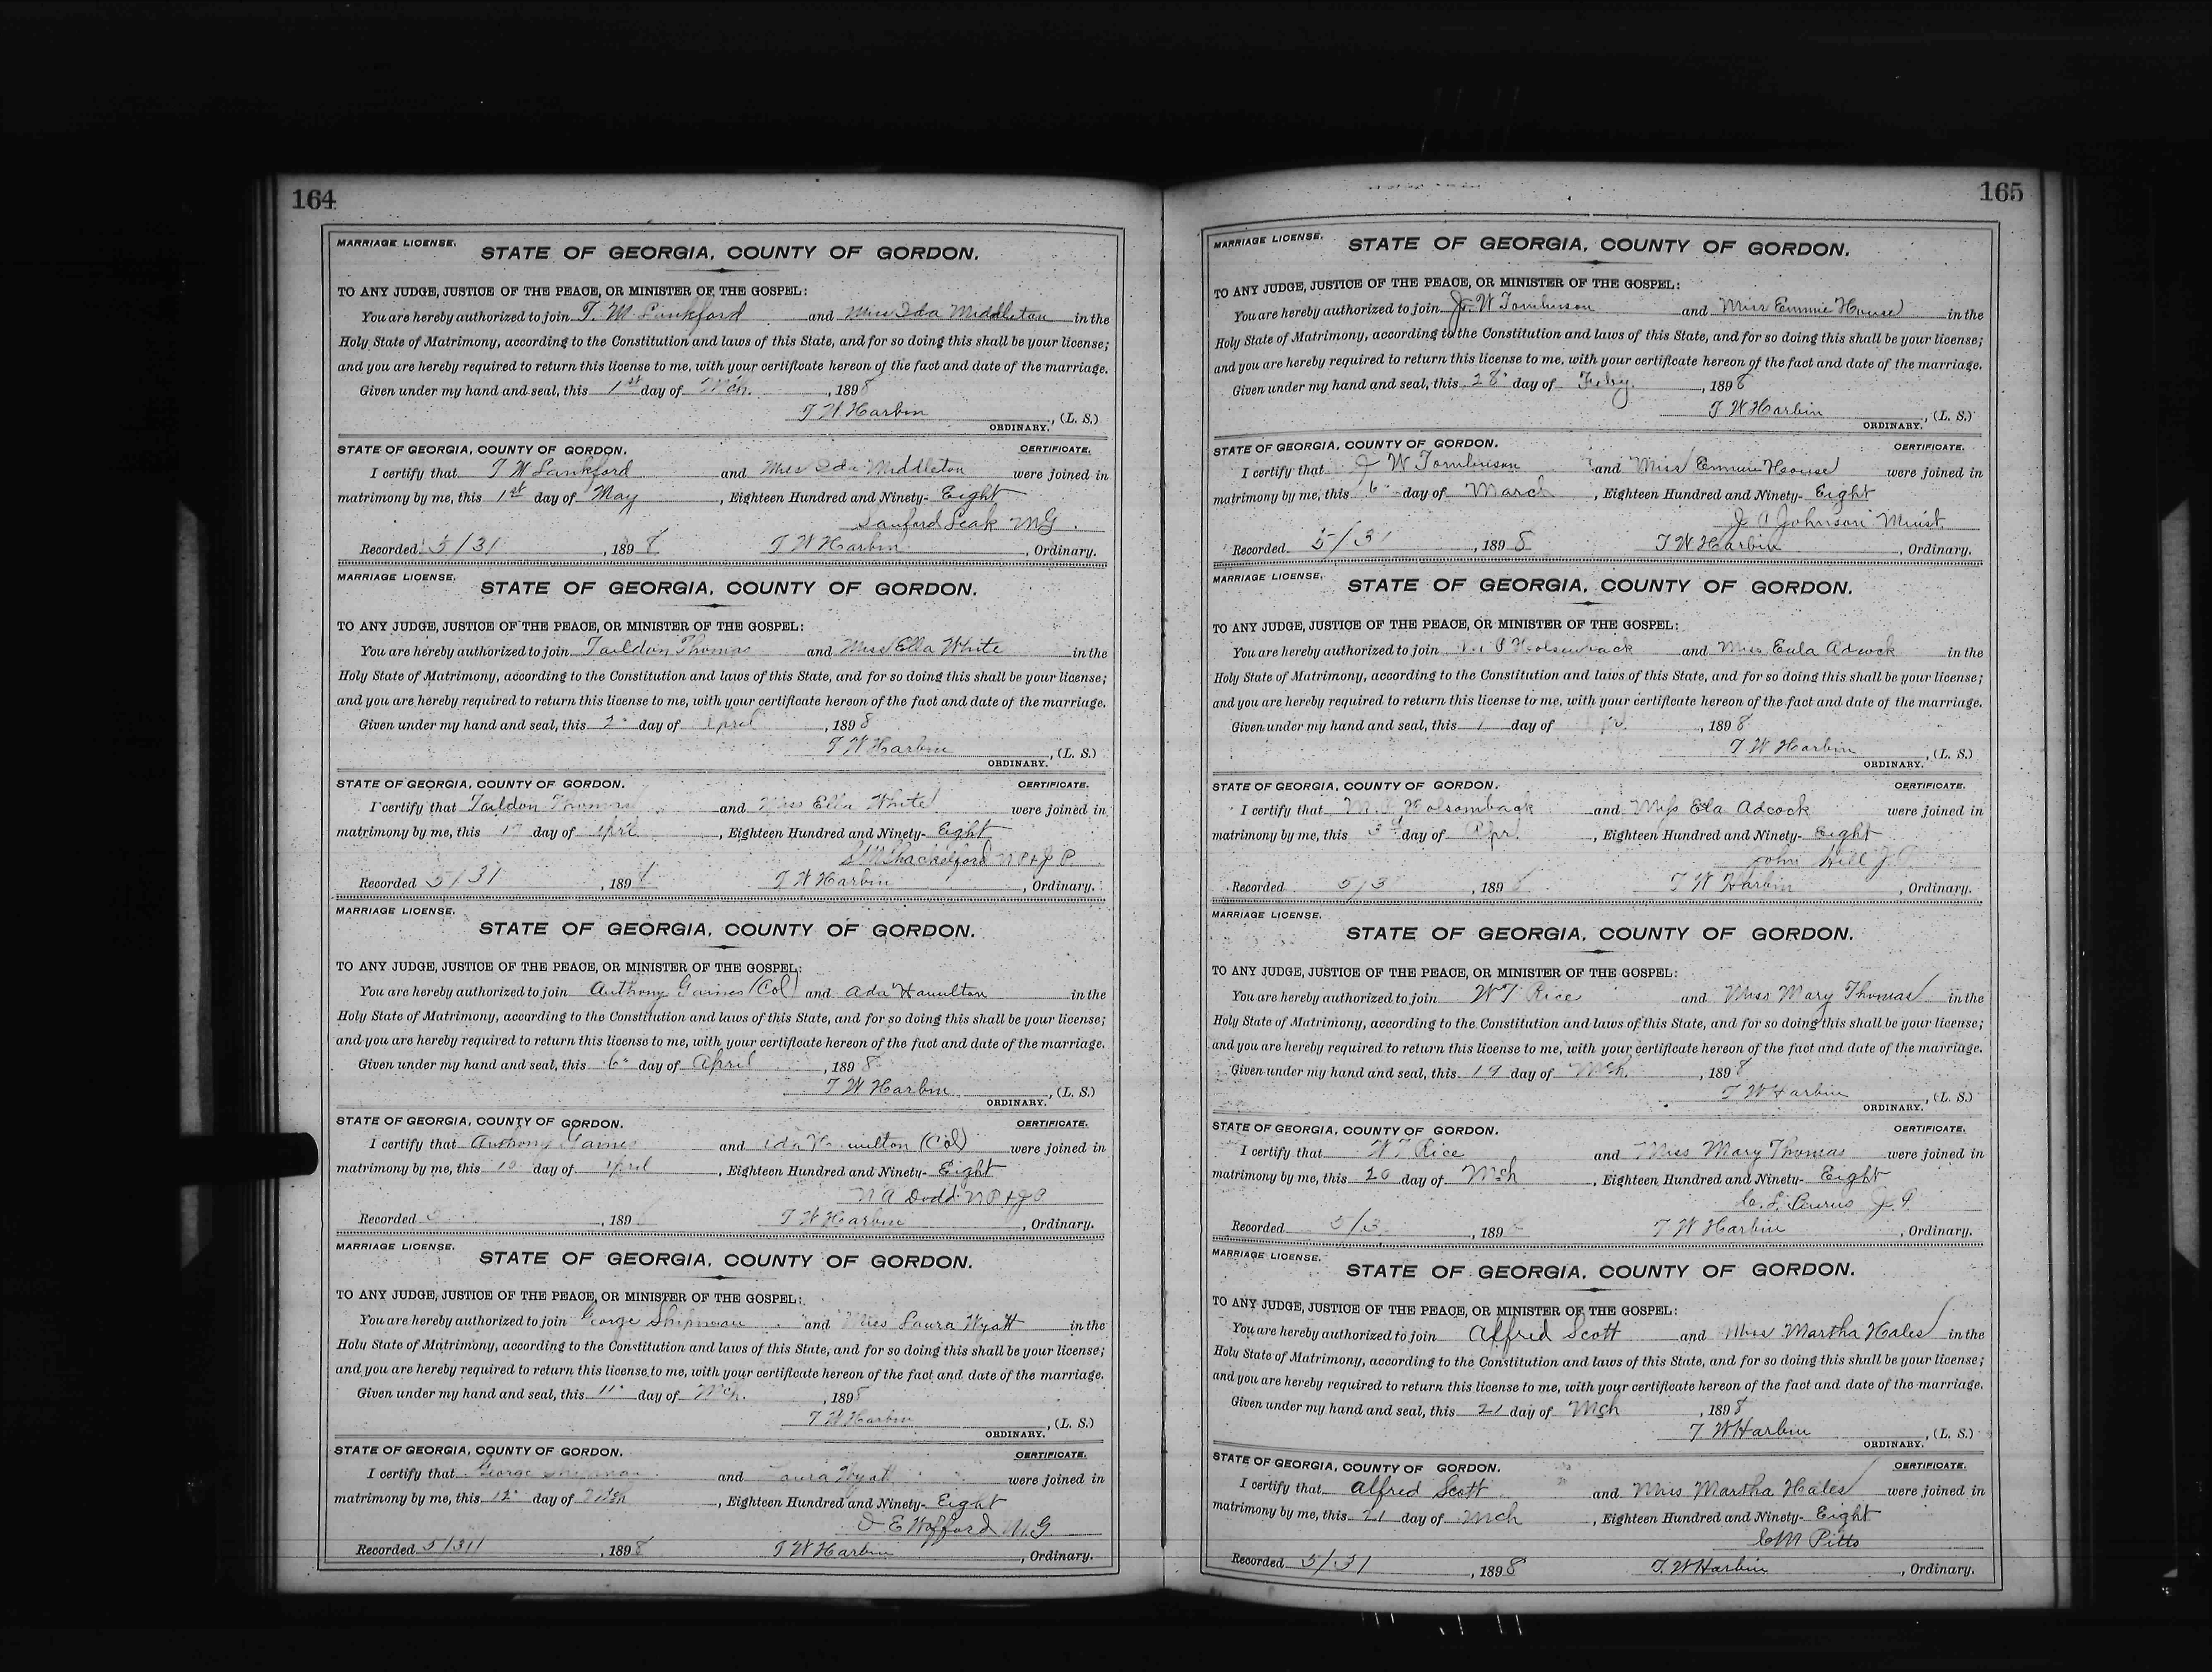 164
MARRIAGE LICENSE.
STATE OF GEORGIA, COUNTY OF GORDON.
TO ANY JUDGE, JUSTICE OF THE PEACE, OR MINISTER OF THE GOSPEL:
You are hereby authorized to join T. M. Lankford and Miss Ida Middleton in the
Holy State of Matrimony, according to the Constitution and laws of this State, and for so doing this shall be your license;
and you are hereby required to return this license to me, with your certificate hereon of the fact and date of the marriage.
Given under my hand and seal, this 1st day of Mch. , 1898
T W Harbin , (L. S.)
ORDINARY.
STATE OF GEORGIA, COUNTY OF GORDON. CERTIFICATE.
I certify that T M Lankford and Miss Ida Middleton were joined in
matrimony by me, this 1st day of May , Eighteen Hundred and Ninety- Eight
Sanford Leak M G .
Recorded 5/31 , 1898 T W Harbin , Ordinary.
MARRIAGE LICENSE.
STATE OF GEORGIA, COUNTY OF GORDON.
TO ANY JUDGE, JUSTICE OF THE PEACE, OR MINISTER OF THE GOSPEL:
You are hereby authorized to join Taildon Thomas and Miss Ella White in the
Holy State of Matrimony, according to the Constitution and laws of this State, and for so doing this shall be your license;
and you are hereby required to return this license to me, with your certificate hereon of the fact and date of the marriage.
Given under my hand and seal, this 2 day of April , 1898
T W Harbin , (L. S.)
ORDINARY.
STATE OF GEORGIA, COUNTY OF GORDON. CERTIFICATE.
I certify that Taildon Thomas and Miss Ella White were joined in
matrimony by me, this day of April , Eighteen Hundred and Ninety- Eight
Shackelford N P & J P.
Recorded 5/31 , 1898 T W Harbin , Ordinary.
MARRIAGE LICENSE.
STATE OF GEORGIA, COUNTY OF GORDON.
TO ANY JUDGE, JUSTICE OF THE PEACE, OR MINISTER OF THE GOSPEL:
You are hereby authorized to join Anthony Gaines (Col) and Ada Hamilton in the
Holy State of Matrimony, according to the Constitution and laws of this State, and for so doing this shall be your license;
and you are hereby required to return this license to me, with your certificate hereon of the fact and date of the marriage.
Given under my hand and seal, this 6 day of April , 1898
T W Harbin , (L. S.)
ORDINARY.
STATE OF GEORGIA, COUNTY OF GORDON. CERTIFICATE.
I certify that Anthony Gaines and Ada Hamilton (Col) were joined in
matrimony by me, this 10 day of April , Eighteen Hundred and Ninety- Eight
N A Dodd N P & J P
Recorded , 189 T W Harbin , Ordinary.
MARRIAGE LICENSE.
STATE OF GEORGIA, COUNTY OF GORDON.
TO ANY JUDGE, JUSTICE OF THE PEACE, OR MINISTER OF THE GOSPEL:
You are hereby authorized to join George Shipman and Miss Laura Wyatt in the
Holy State of Matrimony, according to the Constitution and laws of this State, and for so doing this shall be your license;
and you are hereby required to return this license to me, with your certificate hereon of the fact and date of the marriage.
Given under my hand and seal, this 11 day of Mch. , 1898
T W Harbin , (L. S.)
ORDINARY.
STATE OF GEORGIA, COUNTY OF GORDON. CERTIFICATE.
I certify that George Shipman and Laura Wyatt were joined in
matrimony by me, this 12 day of Mch , Eighteen Hundred and Ninety- Eight
D E Wofford M. G.
Recorded 5/31 , 1898 T W Harbin , Ordinary.
165
MARRIAGE LICENSE.
STATE OF GEORGIA, COUNTY OF GORDON.
TO ANY JUDGE, JUSTICE OF THE PEACE, OR MINISTER OF THE GOSPEL:
You are hereby authorized to join J. W Tomlinson and Miss Emmie House in the
Holy State of Matrimony, according to the Constitution and laws of this State, and for so doing this shall be your license;
and you are hereby required to return this license to me, with your certificate hereon of the fact and date of the marriage.
Given under my hand and seal, this 28 day of Feby. , 1898
T W Harbin , (L. S.)
ORDINARY.
STATE OF GEORGIA, COUNTY OF GORDON. CERTIFICATE.
I certify that J W Tomlinson and Miss Emmie House were joined in
matrimony by me, this 6 day of March , Eighteen Hundred and Ninety- Eight
J A Johnson Minist.
Recorded 5/31 , 1898 T W Harbin , Ordinary.
MARRIAGE LICENSE.
STATE OF GEORGIA, COUNTY OF GORDON.
TO ANY JUDGE, JUSTICE OF THE PEACE, OR MINISTER OF THE GOSPEL:
You are hereby authorized to join Holsomback and Miss Eula Adcock in the
Holy State of Matrimony, according to the Constitution and laws of this State, and for so doing this shall be your license;
and you are hereby required to return this license to me, with your certificate hereon of the fact and date of the marriage.
Given under my hand and seal, this 1 day of , 1898
T W Harbin , (L. S.)
ORDINARY.
STATE OF GEORGIA, COUNTY OF GORDON. CERTIFICATE.
I certify that Holsomback and Miss Ela Adcock were joined in
matrimony by me, this 3d day of Apr. , Eighteen Hundred and Ninety- Eight
John Hill J. P.
Recorded 5/3 , 1898 T W Harbin , Ordinary.
MARRIAGE LICENSE.
STATE OF GEORGIA, COUNTY OF GORDON.
TO ANY JUDGE, JUSTICE OF THE PEACE, OR MINISTER OF THE GOSPEL:
You are hereby authorized to join W T Rice and Miss Mary Thomas in the
Holy State of Matrimony, according to the Constitution and laws of this State, and for so doing this shall be your license;
and you are hereby required to return this license to me, with your certificate hereon of the fact and date of the marriage.
Given under my hand and seal, this 19 day of Mch , 1898
T W Harbin , (L. S.)
ORDINARY.
STATE OF GEORGIA, COUNTY OF GORDON. CERTIFICATE.
I certify that W T Rice and Miss Mary Thomas were joined in
matrimony by me, this 20 day of Mch , Eighteen Hundred and Ninety- Eight
C. L. J P
Recorded 5/3 , 189 T W Harbin , Ordinary.
MARRIAGE LICENSE.
STATE OF GEORGIA, COUNTY OF GORDON.
TO ANY JUDGE, JUSTICE OF THE PEACE, OR MINISTER OF THE GOSPEL:
You are hereby authorized to join Alfred Scott and Miss Martha Hales in the
Holy State of Matrimony, according to the Constitution and laws of this State, and for so doing this shall be your license;
and you are hereby required to return this license to me, with your certificate hereon of the fact and date of the marriage.
Given under my hand and seal, this 21 day of Mch , 1898
T W Harbin , (L. S.)
ORDINARY.
STATE OF GEORGIA, COUNTY OF GORDON. CERTIFICATE.
I certify that Alfred Scott and Miss Martha Hales were joined in
matrimony by me, this 21 day of Mch , Eighteen Hundred and Ninety- Eight
C M Pitts
Recorded 5/31 , 1898 T. W Harbin , Ordinary.